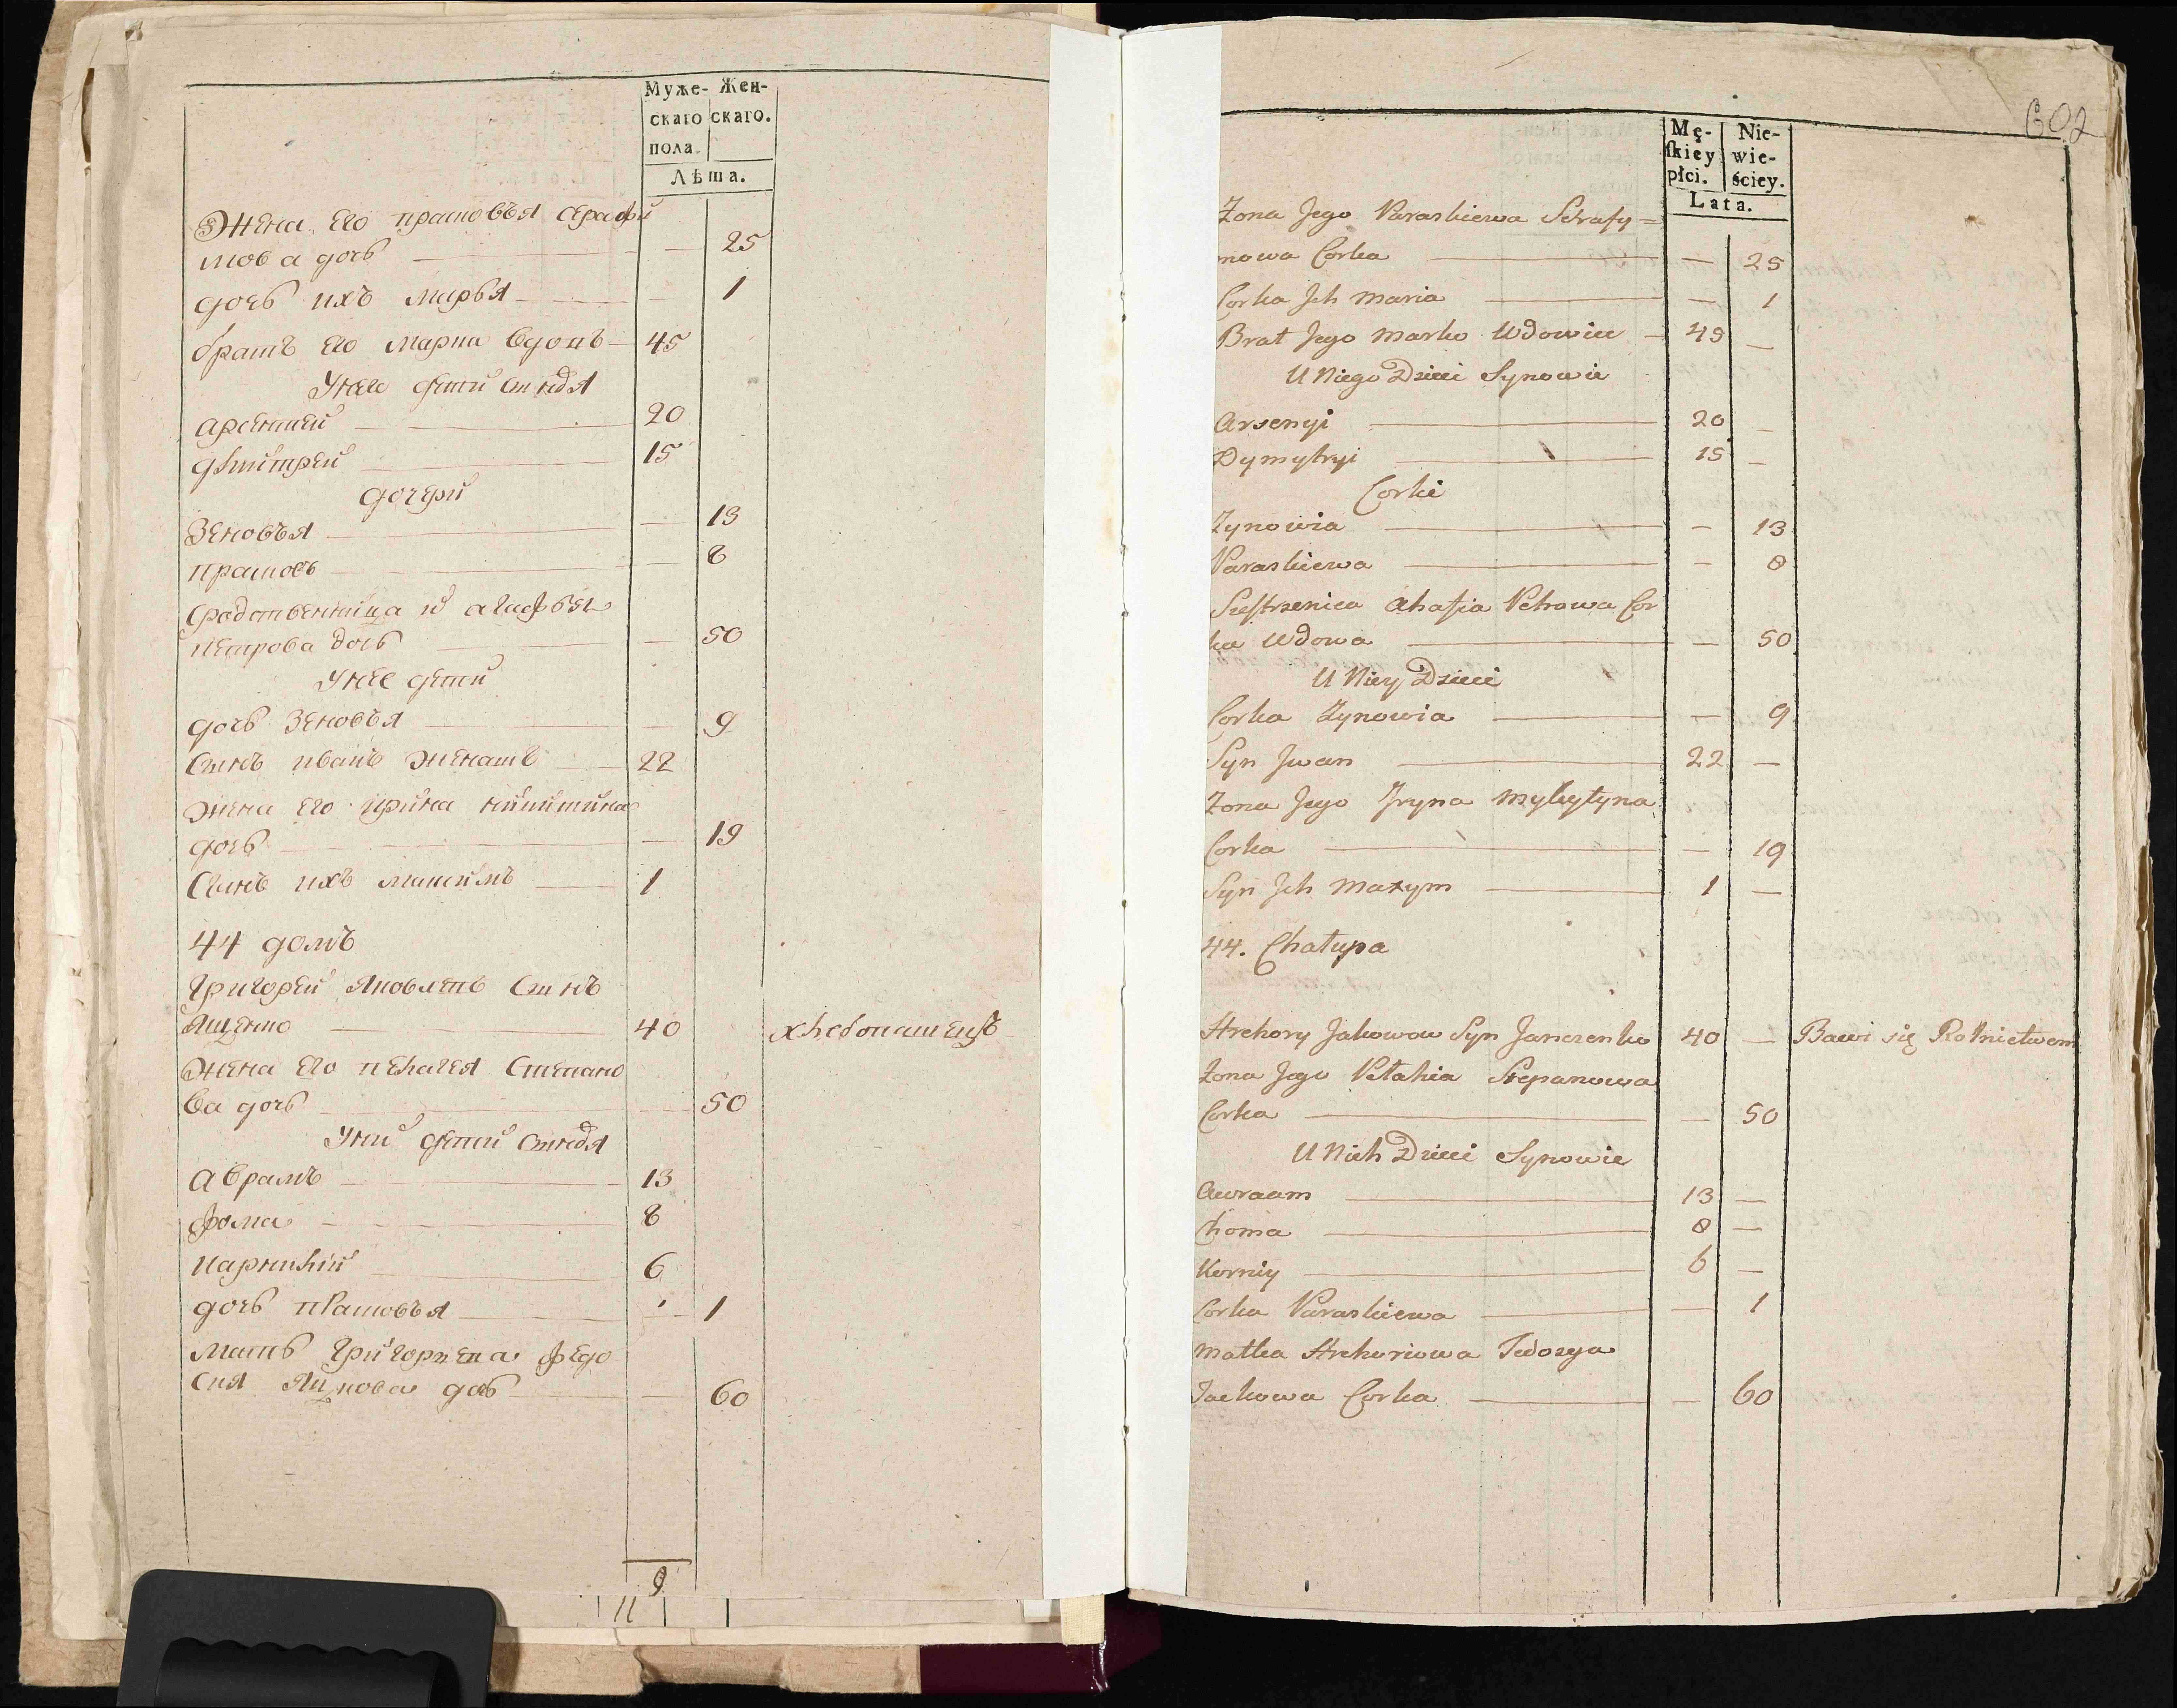 Муже- Жен-
скаго скаго.
пола.
Лѣта.
Жена Его прасковья Серафи
мова дочь — 25
дочь ихъ марья — 1
братъ Его марко вдовъ 45
Унего дети Синовя
арсентей 20
дмитрей 15
дочери
Зеновья — 13
прасковь — 8
Сродственница и агафья
петрова дочь — 50
Унее дети
дочь Зеновья — 9
Синъ иванъ Женатъ 22
Жена Его ирина никитина
дочь — 19
Синъ ихъ максимъ 1
44 домъ
Григорей Яковлевъ Синъ
Ященко 40 хлебопашецъ
Жена Его пелагея Степано
ва дочь — 50
Уних дети Синовя
аврамъ 13
фома 8
карнилий 6
дочь прасковья — 1
мать Григориева федо
сия Яцкова дочь — 60
9
11
602
Mę- Nie-
ſkiey wie-
płci. ściey.
Lata.
Zona Jego Paraskiewa Serafy=
mowa Corka — 25
Corka Jch Maria — 1
Brat Jego Marko Wdowiec 45 —
U Niego Dzieci Synowie
Arsenyi 20 —
Dymytryi 15 —
Corki
Zynowia — 13
Paraskiewa — 8
Siestrzenica Ahafia Petrowa Cor
ka Wdowa — 50
U Niey Dzieci
Corka Zynowia — 9
Syn Jwan 22 —
Zona Jego Jryna Mykytyna
Corka — 19
Syn Jch Maxym 1 —
44. Chałupa
Hrehory Jakowow Syn Janczenko 40 — Bawi się Rolnictwem
Zona Jego Pelahia Stepanowa
Corka — 50
U Nich Dzieci Synowie
Awraam 13 —
Choma 8 —
Korniy 6 —
Corka Paraskiewa — 1
Matka Hrehoriowa Fedosya
Jackowa Corka — 60